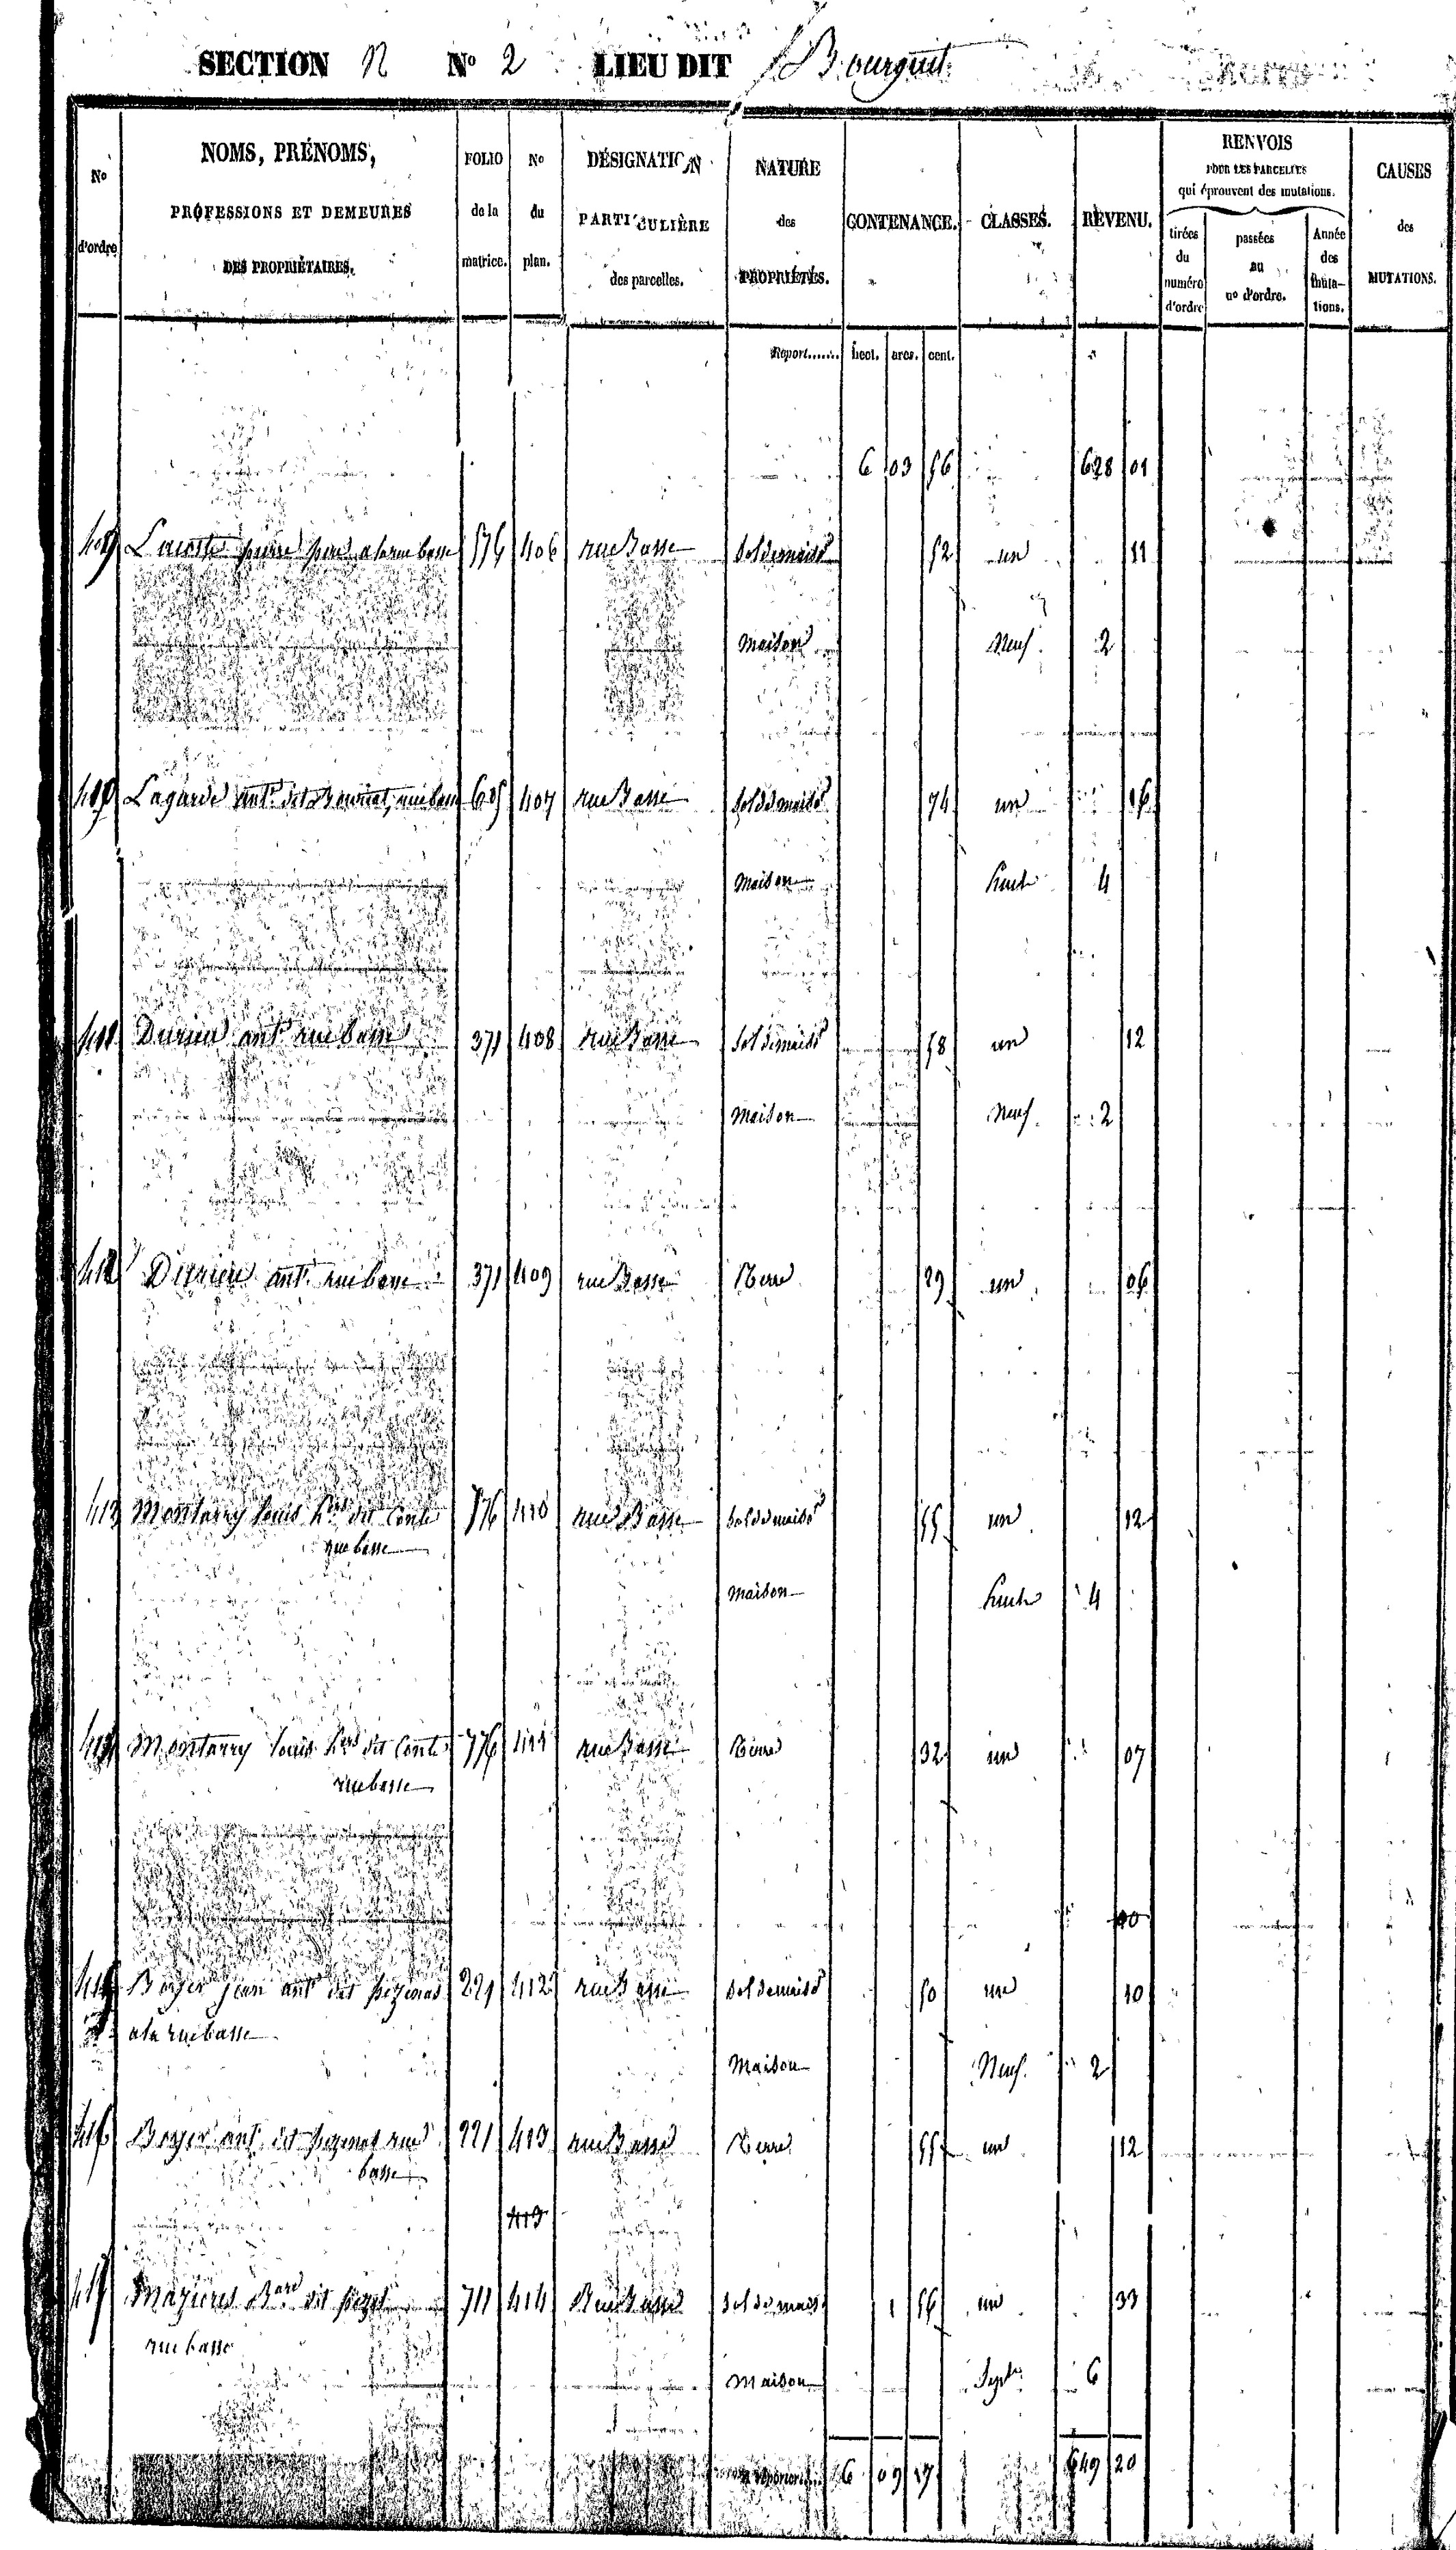 SECTION N N° 2 LIEU DIT Bourguet
N° d'ordre
NOMS, PRÉNOMS, PROFESSIONS ET DEMEURES DES PROPRIÉTAIRES.
FOLIO de la matrice.
N° du plan.
DÉSIGNATION PARTICULIÈRE des parcelles.
NATURE des PROPRIÉTÉS.
CONTENANCE.
CLASSES.
REVENU.
RENVOIS POUR LES PARCELLES qui éprouvent des mutations.
tirées du numéro d'ordre
passées au no d'ordre.
Année des muta-tions.
CAUSES des MUTATIONS.
Report...... hect. ares. cent.
6 03 56 628 01
pierre a la rue basse 576 406 rue Basse Sol de maison 52 un 11
Maison Neuf 2
Lagarde ant. dit rue basse 407 rue Basse Sol de maison 74 un 16
Maison huit 4
Durieu ant. rue basse 371 408 rue Basse Sol de maison 58 un 12
Maison Neuf 2
412 Durieu ant. rue basse 371 409 rue Basse Terre 29 un 06
413 Montarry louis dit Conte 776 410 rue Basse Sol de maison 55 un 12
rue basse
Maison huit 4
414 Montarry louis dit Conte 776 411 rue Basse Terre 32 un 07
rue basse
10
415 Boyer jean ant. dit pezenas 221 412 rue Basse Sol de maison 50 un 10
a la rue basse
Maison Neuf 2
416 Boyer ant. dit pezenas rue 221 413 rue Basse Terre 55 un 12
basse
413
417 Mazieres dit 711 414 Rue Basse Sol de mais. 1 56 un 33
rue basse
Maison Sept 6
6 09 649 20